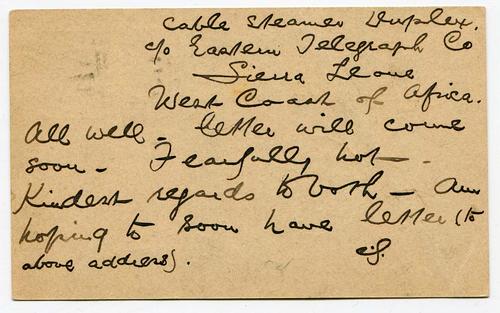 Cable Steamer Duplex.
c/o Eastern Telegraph Co
Sierra Leone
West Coast of Africa.
All well - letter will come
soon - Fearfully hot -
Kindest regards to both - Am
hoping to soon have letter (to
above address).